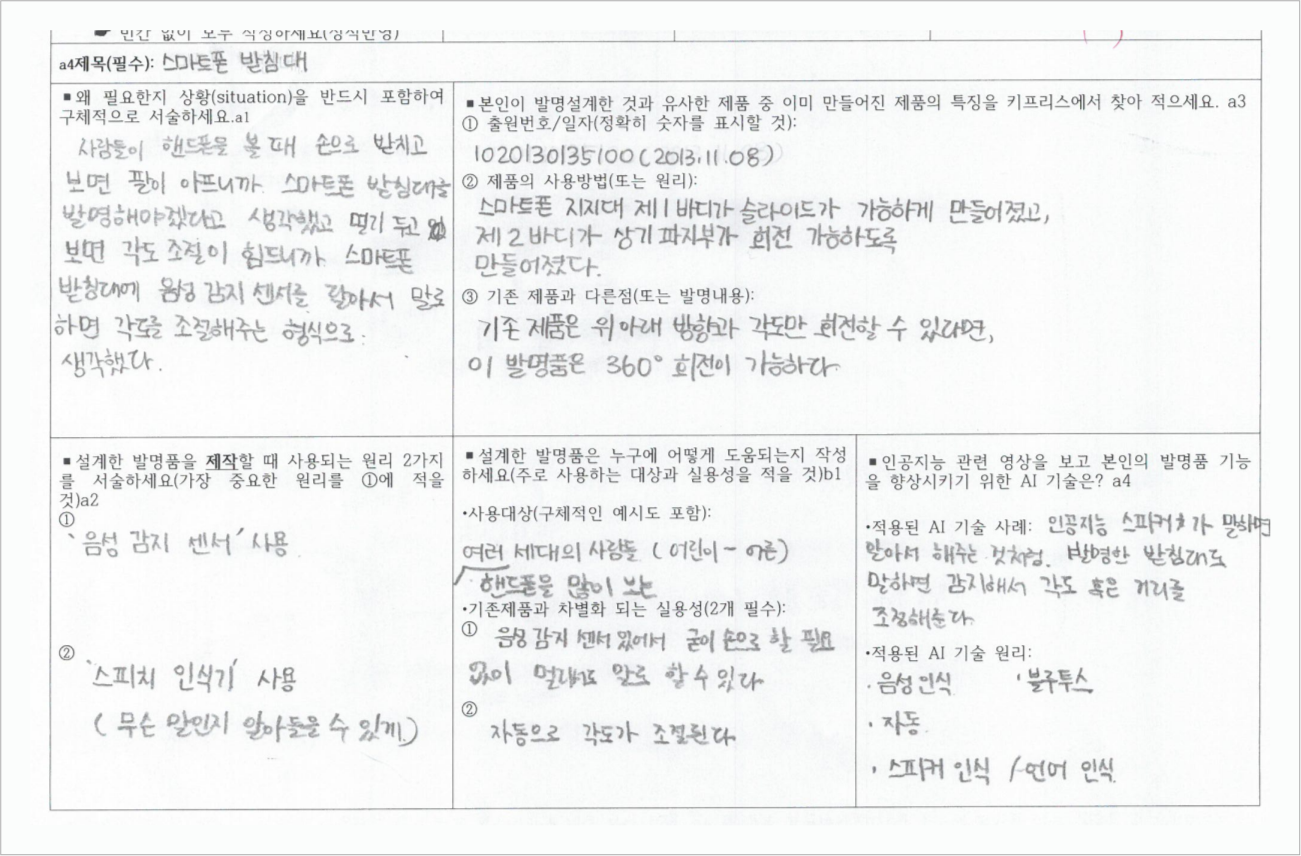 ☛ 빈칸 없이 모두 작성하세요(성적반영)
a4제목(필수): 스마트폰 받침대
■왜 필요한지 상황(situation)을 반드시 포함하여
구체적으로 서술하세요.a1
사람들이 핸드폰을 볼 때 손으로 받치고
보면 팔이 아프니까 스마트폰 받침대를
발명해야겠다고 생각했고 멀리 두고
보면 각도 조절이 힘드니까 스마트폰
받침대에 음성 감지 센서를 달아서 말로
하면 각도를 조절해주는 형식으로
생각했다.
■본인이 발명설계한 것과 유사한 제품 중 이미 만들어진 제품의 특징을 키프리스에서 찾아 적으세요. a3
① 출원번호/일자(정확히 숫자를 표시할 것):
1020130135100 (2013.11.08)
② 제품의 사용방법(또는 원리):
스마트폰 지지대 제1바디가 슬라이드가 가능하게 만들어졌고,
제2바디가 상기 파지부가 회전 가능하도록
만들어졌다.
③ 기존 제품과 다른점(또는 발명내용):
기존 제품은 위아래 방향과 각도만 회전할 수 있다면,
이 발명품은 360° 회전이 가능하다
■설계한 발명품을 제작할 때 사용되는 원리 2가지
를 서술하세요(가장 중요한 원리를 ①에 적을
것)a2
①
'음성 감지 센서' 사용
②
'스피치 인식기' 사용
( 무슨 말인지 알아들을 수 있게.)
■설계한 발명품은 누구에 어떻게 도움되는지 작성
하세요(주로 사용하는 대상과 실용성을 적을 것)b1
•사용대상(구체적인 예시도 포함):
여러 세대의 사람들 ( 어린이 ~ 어른)
핸드폰을 많이 보는
•기존제품과 차별화 되는 실용성(2개 필수):
① 음성 감지 센서 있어서 굳이 손으로 할 필요
없이 멀리서도 말로 할 수 있다
②
자동으로 각도가 조절된다
■인공지능 관련 영상을 보고 본인의 발명품 기능
을 향상시키기 위한 AI 기술은? a4
•적용된 AI 기술 사례: 인공지능 스피커가 말하면
알아서 해주는 것처럼. 발명한 받침대도
말하면 감지해서 각도 혹은 거리를
조정해준다
•적용된 AI 기술 원리:
· 음성 인식 · 블루투스
· 자동
· 스피커 인식 / 언어 인식